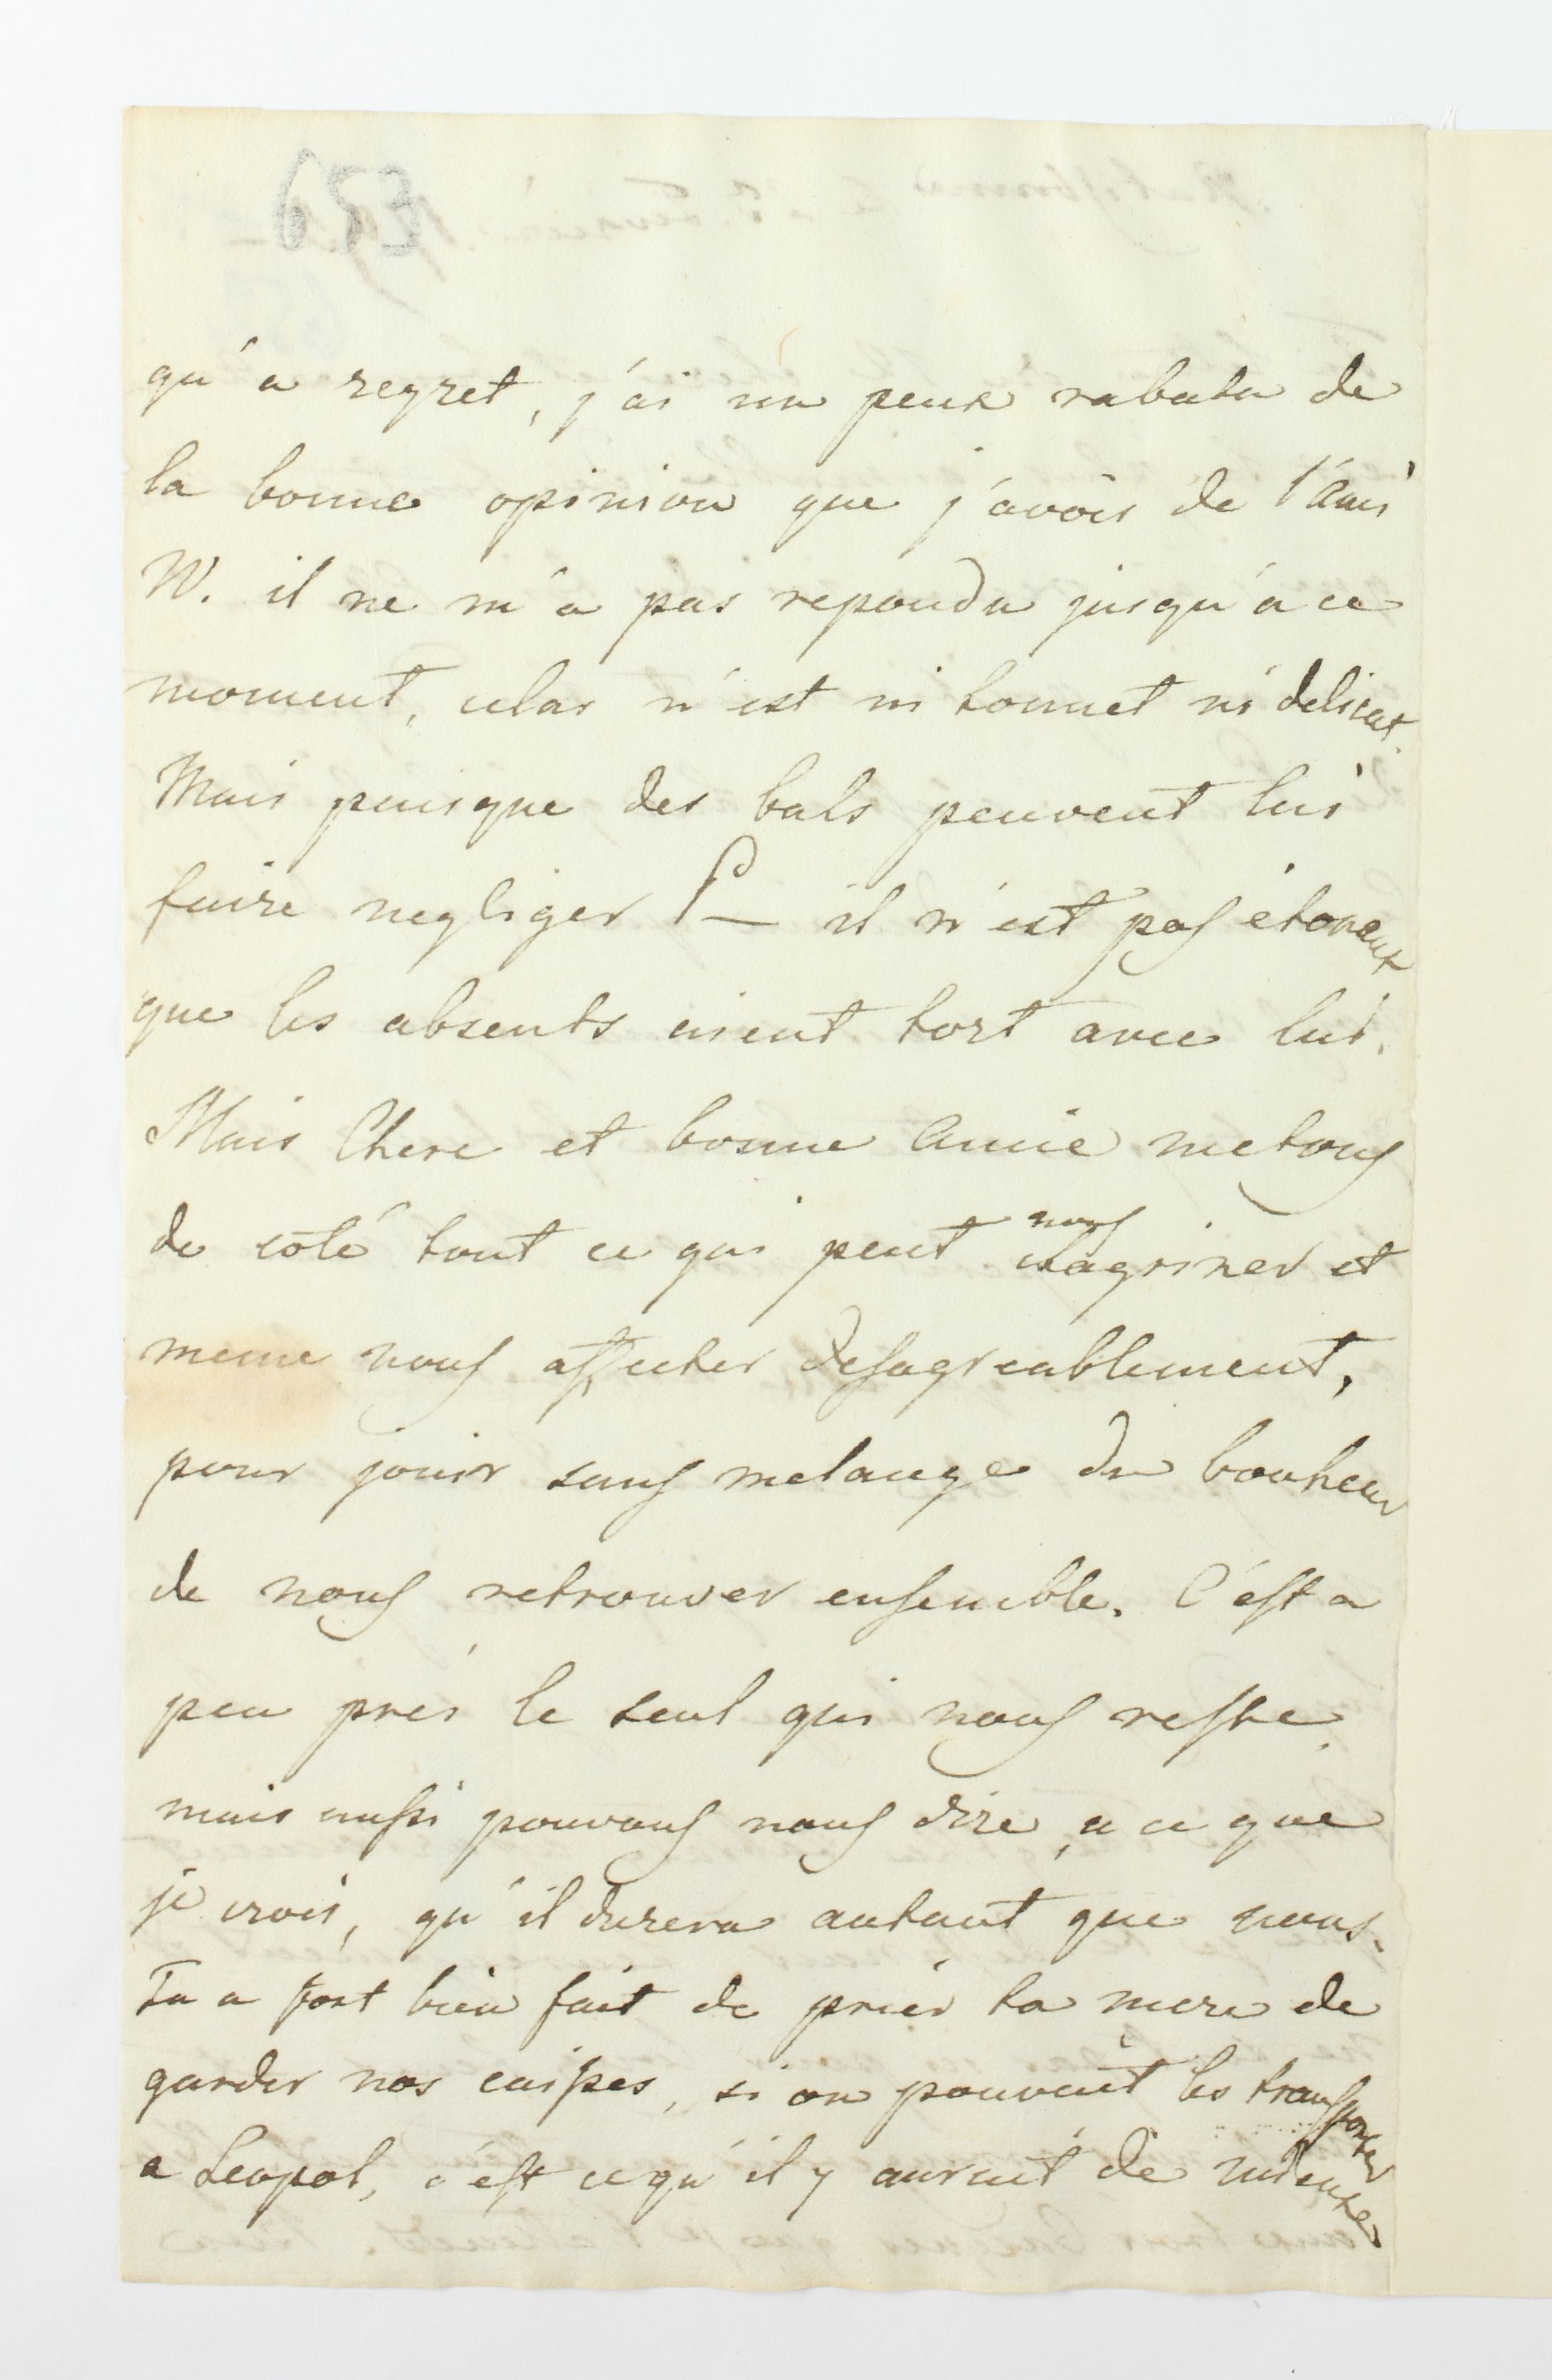 qu'a regret, j'ai un peux rabatu de
la bonne opinion que j'avois de l'ami
W. il ne m'a pas repondu jusqu'a ce
moment, cela n'est ni honnet ni delicat.
Mais puisque des bals peuvent lui
faire negliger P— il n'est pas étonent
que les absents aient tort avec lui.
Mais Chere et bonne Amie metons
de coté tout ce qui peut nous chagriner et
meme nous affecter desagreablement,
pour jouir sans melange du bonheur
de nous retrouver ensemble. C'est a
peu près le seul qui nous reste,
mais aussi pouvons nous dire, a ce que
je crois, qu'il durera autant que nous.
Tu a fort bien fait de prier ta mere de
garder nos caisses, si on pouvait les transporter
a Leopol, c'est ce qu'il y aurait de mieux